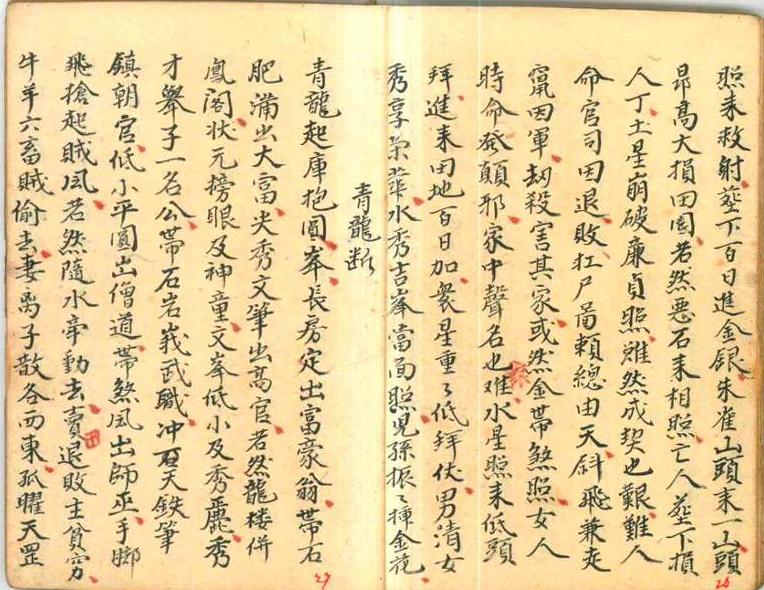 照來救射葬下百日進金銀朱雀山頭來一山頭
昂高大損田園若然惡石來相照亡人葬下損
人丁土星崩破廉貞照雖然成契也艱難人
命官司因退敗扛尸啚賴總由天斜飛兼走
竄因軍劫殺害其家或然金帶煞照女人
時命發顛邪家中聲名也难水星照來低頭
拜進來田地百日加衆星重々低拜伏男清女
秀享荣華水秀吉峯當面照児孫振々揷金花
26
青龍断
青龍起庫抱圓峯長房定出富豪翁帶石
肥滿出大富尖秀文筆出高官若然龍楼併
鳳閣状元榜眼及神童文峯低小及秀麗秀
才舉子一名公帶石岩峩武職冲天鉄筆
鎮朝官低小平圓出僧道帶煞風出師巫手脚
飛搶起賊风若然隨水牽動去賣退敗主貧穷
牛羊六畜賊偷去妻离子散各西東孤曜天罡
27